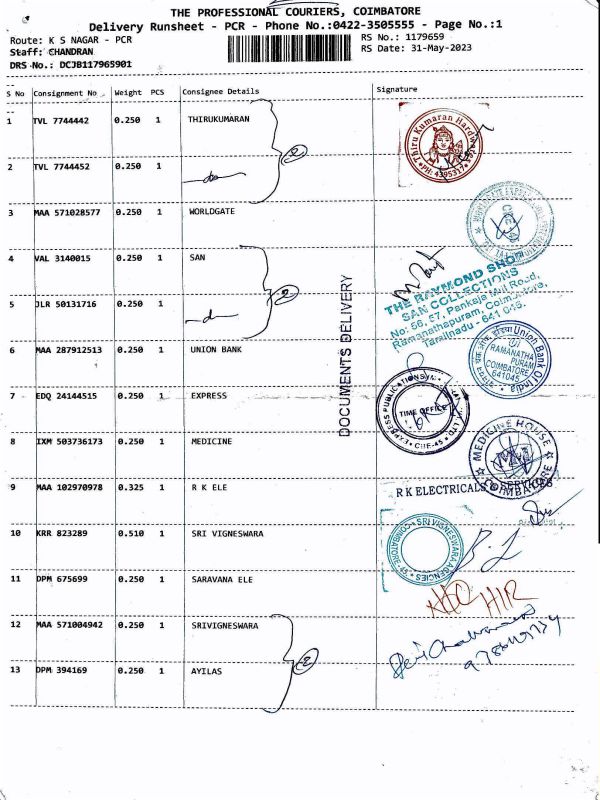 THE PROFESSIONAL COURIERS, COIMBATORE
Delivery Runsheet - PCR - Phone No.:0422-3505555 - Page No.:1
Route: K S NAGAR - PCR
RS No.: 1179659
Staff: CHANDRAN
RS Date: 31-May-2023
DRS No.: DCJB117965901
S No Consignment No Weight PCS Consignee Details Signature
1 TVL 7744442 0.250 1 THIRUKUMARAN
2 TVL 7744452 0.250 1 -do-
2
3 MAA 571028577 0.250 1 WORLDGATE
4 VAL 3140015 0.250 1 SAN
5 JLR 50131716 0.250 1 -do-
2
6 MAA 287912513 0.250 1 UNION BANK
7 EDQ 24144515 0.250 1 EXPRESS
8 IXM 503736173 0.250 1 MEDICINE
9 MAA 102970978 0.325 1 R K ELE
10 KRR 823289 0.510 1 SRI VIGNESWARA
11 DPM 675699 0.250 1 SARAVANA ELE
12 MAA 571004942 0.250 1 SRIVIGNESWARA
13 DPM 394169 0.250 1 AYILAS
2
DOCUMENTS DELIVERY
Thiru Kumaran Hardwares
PH: 4395317
THE RAYMOND SHOP
SAN COLLECTIONS
No: 56, 57, Pankaja Mill Road,
Ramanathapuram, Coimbatore,
Tamilnadu - 641 045.
Union Bank Of India
RAMANATHA
PURAM
COIMBATORE
641045
EXPRESS PUBLICATIONS
TIME OFFICE
CBE-45
MEDICINE HOUSE
COIMBATORE
R K ELECTRICALS & SERVICES
SRI VIGNESWARA AGENCIES
COIMBATORE-45